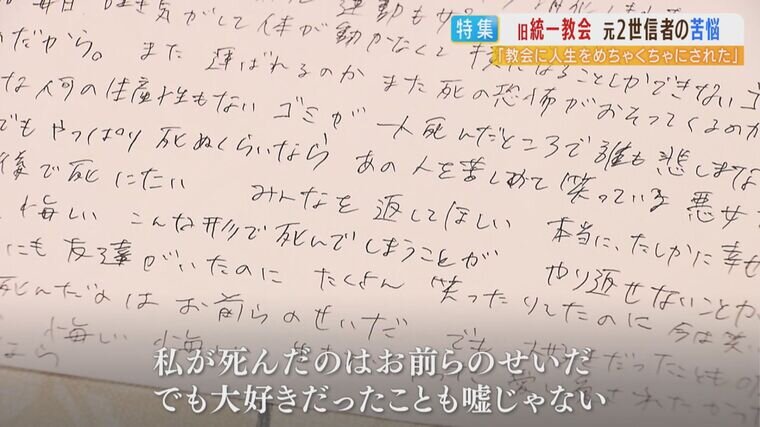 特集
旧統一教会 元2世信者の苦悩
「教会に人生をめちゃくちゃにされた」
がして体が動かなくて
だから。また運ばれるのかまた死の恐怖がおそってくるのか
な何の生産性もないゴミが一人死んだところで誰も悲しまな
でもやっぱり死ぬくらいならあの人を苦しめて笑っている悪女
後で死にたい みんなを返してほしい 本当に、たしかに幸せ
悔しい こんな形で死んでしまうことが やり返せないことが
にも友達がいたのに たくさん笑ったりしてたのに 今は笑
死んだのはお前らのせいだ でも
悔しい
私が死んだのはお前らのせいだ
でも大好きだったことも嘘じゃない